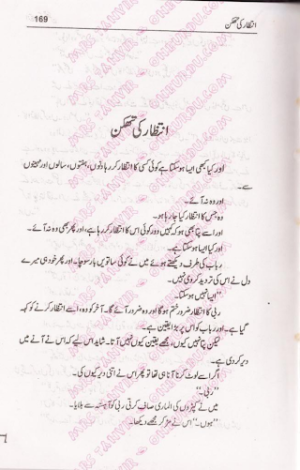 169
انتظار کی تھکن
انتظار کی تھکن
اور کیا کبھی ایسا ہو سکتا ہے کوئی کسی کا انتظار کر رہا دنوں، ہفتوں، سالوں اور مہینوں
سے۔
اور وہ نہ آئے۔
وہ جس کا انتظار کیا جا رہا ہو۔
اور اسے پتا بھی ہو کہ کہیں دور کوئی اس کا انتظار کر رہا ہے، اور پھر بھی وہ نہ آئے۔
اور کیا ایسا ہو سکتا ہے۔
رباب کی طرف دیکھتے ہوئے میں نے کوئی ساتویں بار سوچا۔ اور پھر خود ہی میرے
دل نے اس کی تردید کر دی نہیں۔
ایسا نہیں ہو سکتا۔
ربی کا انتظار ضرور ختم ہو گا اور وہ ضرور آئے گا۔ آخر کو وہ اسے انتظار کرنے کو کہہ
گیا ہے۔ اور رباب کو اس پر بڑا یقین ہے۔
لیکن پتا نہیں کیوں، مجھے یقین کیوں نہیں آتا۔ شاید اس لیے کہ اس نے آنے میں
دیر کر دی ہے۔
اگر اسے لوٹ کر آنا ہی تھا تو پھر اس نے اتنی دیر کیوں کی۔
”ربی۔“
میں نے کپڑوں کی الماری صاف کرتی ربی کو آہستہ سے بلایا۔
”ہوں۔“ اس نے مڑ کر مجھے دیکھا۔